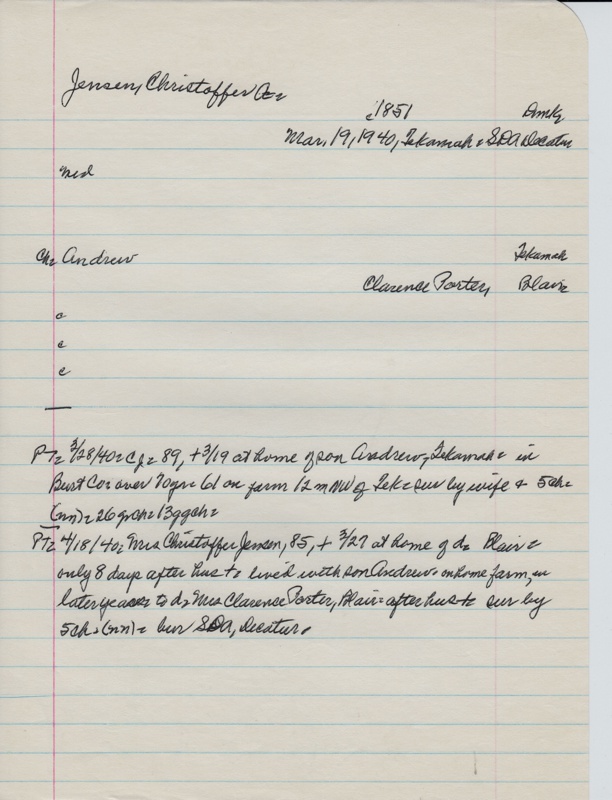 Jensen, Christoffer C=
c1851 Dmk,
Mar, 19, 1940, Tekamah = SDA Decatur
Md
Ch= Andrew Tekamah
Clarence Porter, Blair=
c
c
c
—
PT= 3/28/40= CJ= 89, + 3/19 at home of son Andrew, Tekamah = in
Burt Co= over 70 yrs= 61 on farm 12 m NW of Tek= sur by wife + 5 ch=
(nn)= 26 grch= 13 ggch=
PT= 4/18/40= Mrs Christoffer Jensen, 85, + 3/27 at home of d= Blair=
only 8 days after hus += lived with son Andrew= on home farm, in
later years to d, Mrs Clarence Porter, Blair= after hus += sur by
5 ch= (nn)= bur SDA, Decatur.